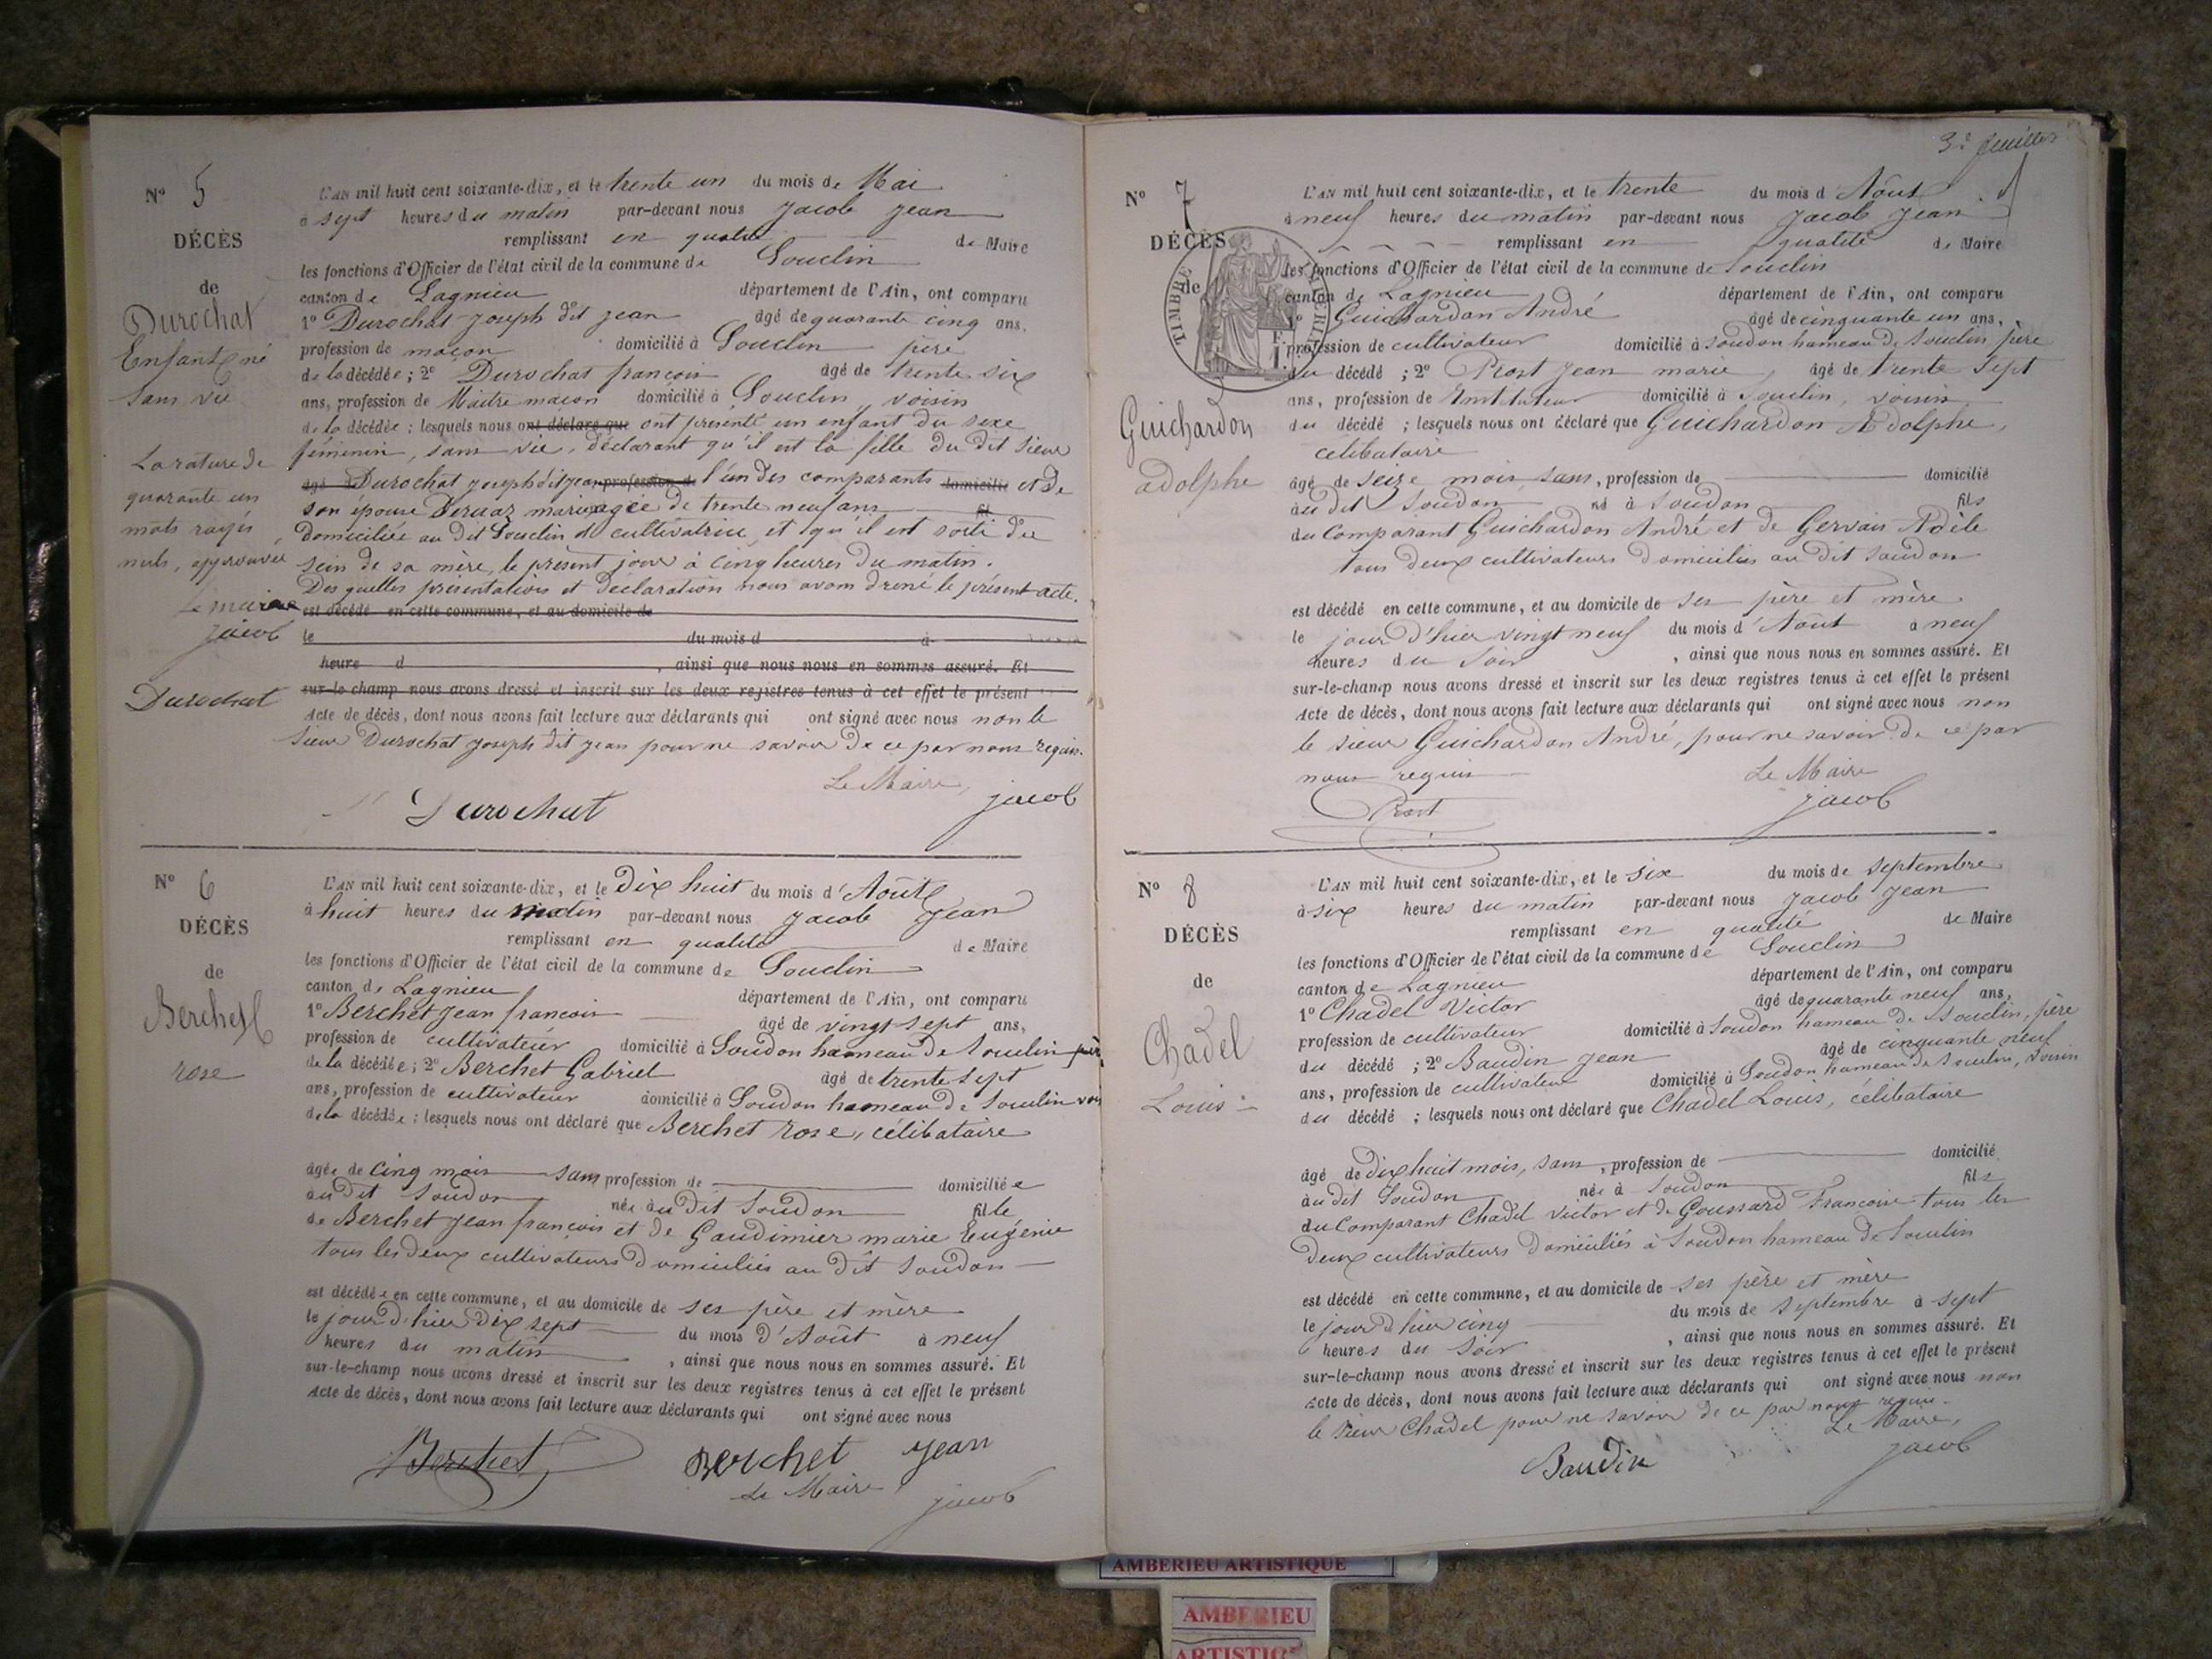 N° 5
DÉCÈS
de
Durochat
Enfant né
sans vie
La rature de
quarante un
mots rayés
nuls, approuvée
Le maire
Jacob
Durochat
L'AN mil huit cent soixante-dix, et le trente un du mois de Mai
à sept heures du matin par-devant nous Jacob Jean
remplissant en qualité de Maire
les fonctions d'Officier de l'état civil de la commune de Souclin
canton de Lagnieu département de l'Ain, ont comparu
1° Durochat Joseph dit Jean âgé de quarante cinq ans,
profession de maçon domicilié à Souclin père
de la décédée ; 2° Durochat françois âgé de trente six
ans, profession de Maitre maçon domicilié à Souclin, voisin
de la décédée ; lesquels nous ont déclaré que ont présenté un enfant du sexe
féminin, sans vie, déclarant qu'il est la fille du dit Sieur
âgé Durochat Joseph dit Jean profession de l'un des comparants domicilié et de
son épouse marie agée de trente neuf ans fil
Domiciliée au dit Souclin cultivatrice, et qu'il est sorti du
sein de sa mère, le présent jour à cinq heures du matin.
Des quelles présentations et déclaration nous avons dressé le présent acte.
est décédé en cette commune, et au domicile de
le du mois d à
heure d , ainsi que nous nous en sommes assuré. Et
sur-le-champ nous avons dressé et inscrit sur les deux registres tenus à cet effet le présent
Acte de décès, dont nous avons fait lecture aux déclarants qui ont signé avec nous non le
Sieur Durochat Joseph dit Jean pour ne savoir de ce par nous requis.
Le Maire,
Durochat Jacob
N° 6
DÉCÈS
de
Berchet
rose
L'AN mil huit cent soixante-dix, et le Dix huit du mois d'Août
à huit heures du matin par-devant nous Jacob Jean
remplissant en qualité de Maire
les fonctions d'Officier de l'état civil de la commune de Souclin
canton de Lagnieu département de l'Ain, ont comparu
1° Berchet Jean françois âgé de vingt sept ans,
profession de cultivateur domicilié à Soudon hameau de Souclin père
de la décédée ; 2° Berchet Gabriel âgé de trente sept
ans, profession de cultivateur domicilié à Soudon hameau de Souclin vois
de la décédée ; lesquels nous ont déclaré que Berchet rose, célibataire
âgée de cinq mois sans profession de domiciliée
au dit Soudon née au dit Soudon fille
de Berchet Jean françois et de Gaudimier marie Eugénie
tous les deux cultivateurs Domiciliés au dit Soudon
est décédée en cette commune, et au domicile de ses père et mère
le jour d'hier dix sept du mois d'Août à neuf
heures du matin , ainsi que nous nous en sommes assuré. Et
sur-le-champ nous avons dressé et inscrit sur les deux registres tenus à cet effet le présent
Acte de décès, dont nous avons fait lecture aux déclarants qui ont signé avec nous
Berchet Berchet Jean
Le Maire
Jacob
3e feuillet
N° 7
DÉCÈS
de
Guichardon
adolphe
TIMBRE
L'AN mil huit cent soixante-dix, et le trente du mois d'Août
à neuf heures du matin par-devant nous Jacob Jean
remplissant en qualité de Maire
les fonctions d'Officier de l'état civil de la commune de Souclin
canton de Lagnieu département de l'Ain, ont comparu
1° Guichardon André âgé de cinquante un ans,
profession de cultivateur domicilié à Soudon hameau de Souclin père
du décédé ; 2° Prost Jean marie, âgé de trente sept
ans, profession de Instituteur domicilié à Souclin, voisin
du décédé ; lesquels nous ont déclaré que Guichardon Adolphe,
célibataire
âgé de seize mois, sans, profession de domicilié
au dit Soudon né à Soudon fils
du Comparant Guichardon André et de Gervais Adèle
tous deux cultivateurs Domiciliés au dit Soudon
est décédé en cette commune, et au domicile de ses père et mère
le jour d'hier vingt neuf du mois d'Aout à neuf
heures du Soir , ainsi que nous nous en sommes assuré. Et
sur-le-champ nous avons dressé et inscrit sur les deux registres tenus à cet effet le présent
Acte de décès, dont nous avons fait lecture aux déclarants qui ont signé avec nous non
le sieur Guichardon André, pour ne savoir de ce par
nous requis Le Maire
Prost Jacob
N° 8
DÉCÈS
de
Chadel
Louis
L'AN mil huit cent soixante-dix, et le six du mois de septembre
à six heures du matin par-devant nous Jacob Jean
remplissant en qualité de Maire
les fonctions d'Officier de l'état civil de la commune de Souclin
canton de Lagnieu département de l'Ain, ont comparu
1° Chadel Victor âgé de quarante neuf ans,
profession de cultivateur domicilié à Soudon hameau de Souclin, père
du décédé ; 2° Baudin Jean âgé de cinquante neuf
ans, profession de cultivateur domicilié à Soudon hameau de Souclin, voisin
du décédé ; lesquels nous ont déclaré que Chadel Louis, célibataire
âgé de dix huit mois, sans, profession de domicilié
au dit Soudon née à Soudon fils
du Comparant Chadel victor et de Goussard Francoise tous les
deux cultivateurs Domiciliés à Soudon hameau de Souclin
est décédé en cette commune, et au domicile de ses père et mère
le jour d'hier cinq du mois de septembre à sept
heures du Soir , ainsi que nous nous en sommes assuré. Et
sur-le-champ nous avons dressé et inscrit sur les deux registres tenus à cet effet le présent
Acte de décès, dont nous avons fait lecture aux déclarants qui ont signé avec nous non
le sieur Chadel pour ne savoir de ce par nous requis.
Le Maire,
Baudin Jacob
AMBERIEU ARTISTIQUE
AMBERIEU
ARTISTIQ